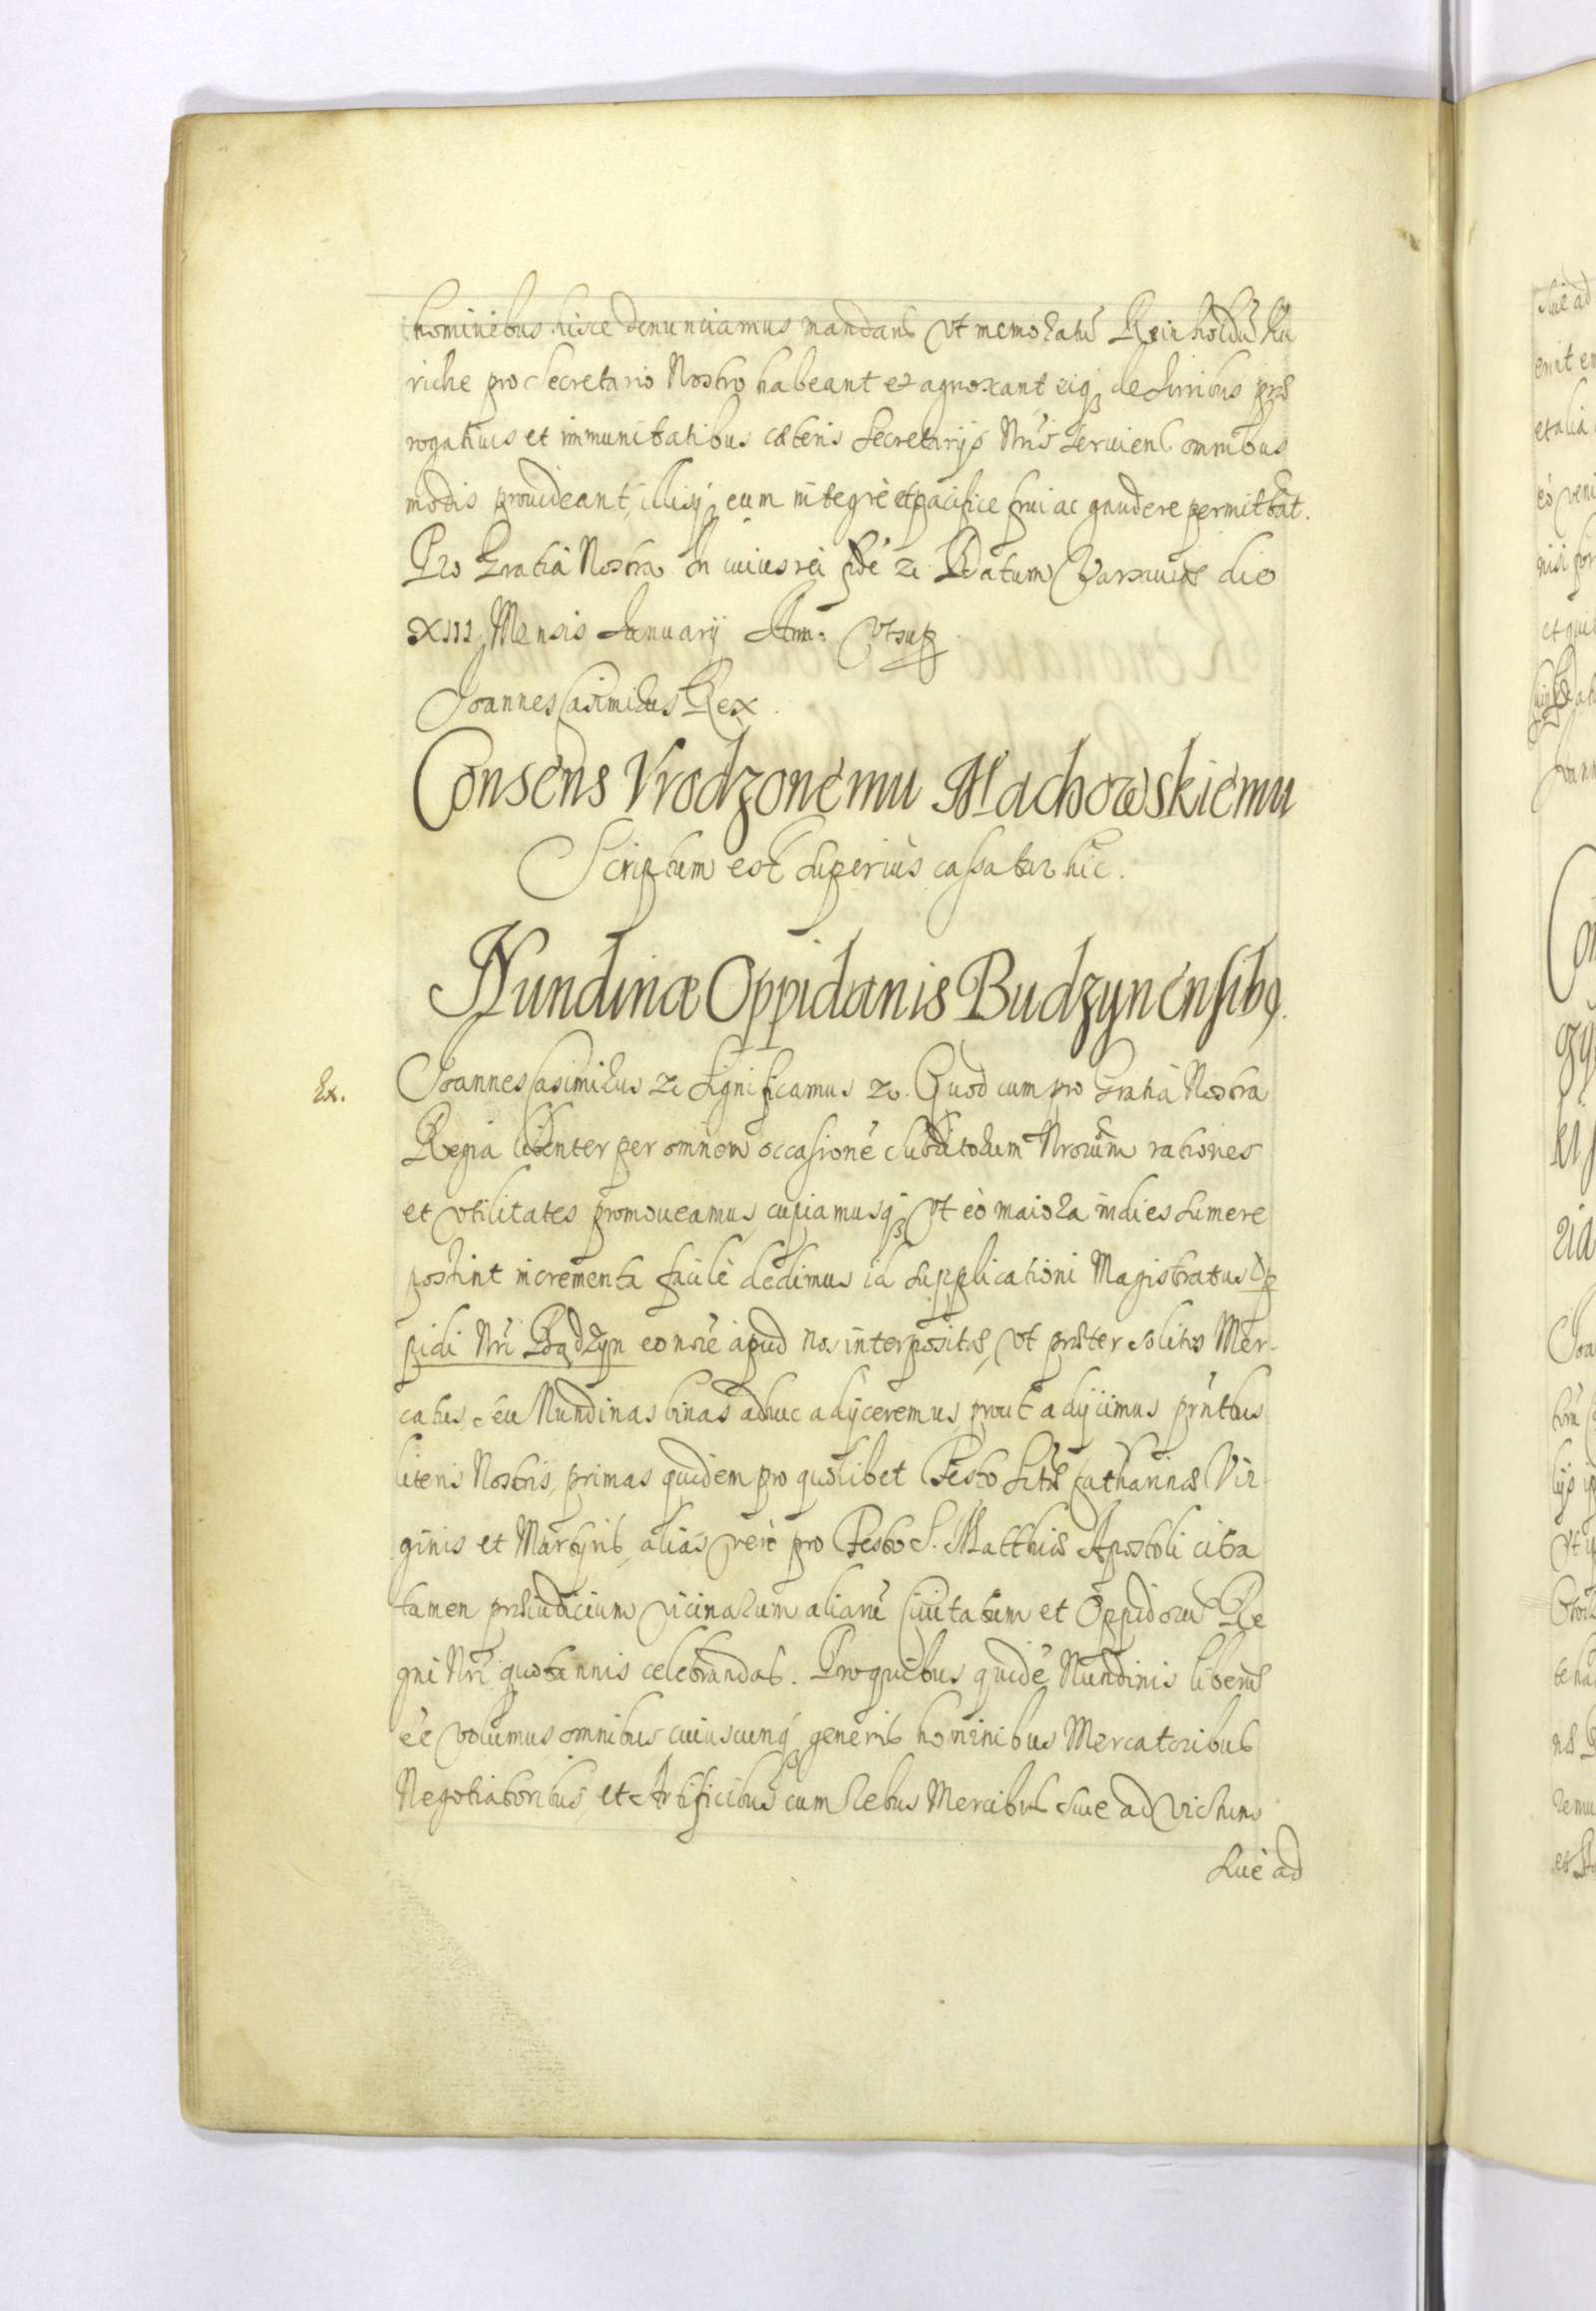 hominibus hisce denunciamus mandans Vt memoratũ Reinholdũ Ku
riche pro Secretario Nostro habeant et agnoscant eiq3 de Juribus præ
rogatiuis et immunitatibus cæteris Secretarijs Nr̃is seruiens omnibus
modis prouideant, illisq3 eum integrè et pacifice frui ac gaudere permittãt.
Pro Gratia Nostra In cuius rei fidẽ &c Datum Varsauiæ die
XIII Mensis January Ann. Vtsup
Joannes Casimirus Rex.
Consens Vrodzonemu Machowskiemu
Scriptum est superius cassatur hic.
Nundinæ Oppidanis Budzynensibq.
Ex.
Joannes Casimirus &c Significamus &c. Quod cum pro Gratia Nostra
Regia libenter per omnem occasionẽ Subditorum Nrorum rationes
et Vtilitates promoueamus, cupiamusq3 Vt eò maiora indies sumere
possint incrementa facilè dedimus id supplicationi Magistratus Op
pidi Nri Bądzyn eo noiẽ apud nos interpositæ, Vt præter solitos Mer-
catus seu Nundinas binas adhuc adijceremus, prout adijcimus prñtbus
literis Nostris, primas quidem pro quolibet Festo Sctæ Catharinæ Vir-
ginis et Martyris, alias verò pro Festo S. Matthiæ Apostoli citra
tamen præiudicium Vicinarum aliarũ Ciuitatum et Oppidorũ Re
gni Nri quotannis celebrandas. Pro quibus quidẽ Nundinis liberũ
eẽ Volumus omnibus cuiuscunq3 generis hominibus Mercatoribus
Negotiatoribus, et Artificibus cum Rebus Mercibus siue ad Victum
siuè ad